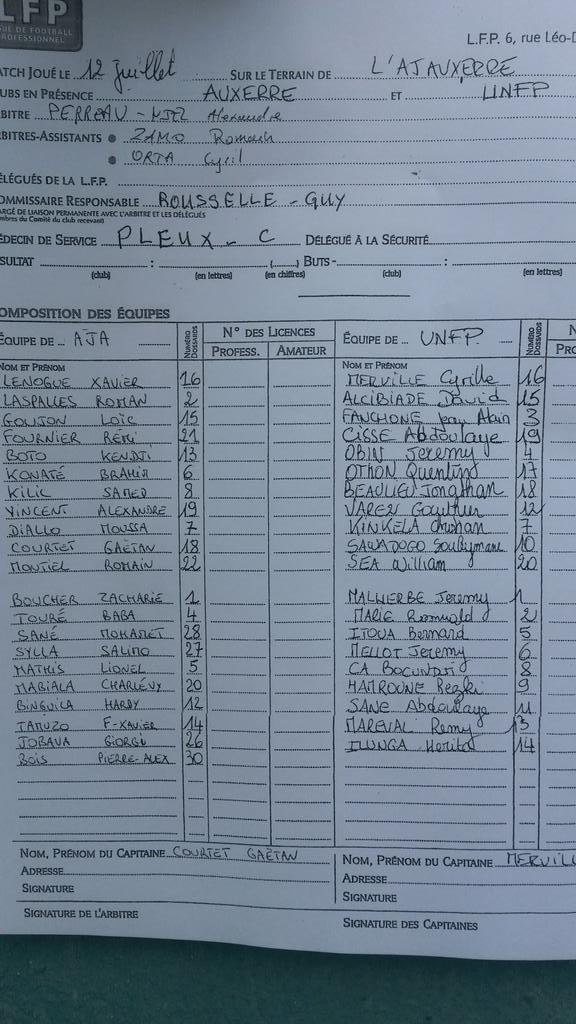 LFP
UE DE FOOTBALL
ROFESSIONNEL
L.F.P. 6, rue Léo-D
ATCH JOUÉ LE 12 juillet SUR LE TERRAIN DE L'AJAUXERRE
UBS EN PRÉSENCE AUXERRE ET UNFP
BITRE PERREAU - NIEL Alexandre
BITRES-ASSISTANTS • ZAMO Romach
• ORTA Cyril
ÉLÉGUÉS DE LA L.F.P.
OMMISSAIRE RESPONSABLE ROUSSELLE - GUY
ARGÉ DE LIAISON PERMANENTE AVEC L'ARBITRE ET LES DÉLÉGUÉS
mbres du Comité du club recevant)
ÉDECIN DE SERVICE PLEUX - C DÉLÉGUÉ À LA SÉCURITÉ
SULTAT : ( ) BUTS - :
(club) (en lettres) (en chiffres) (club) (en lettres)
OMPOSITION DES ÉQUIPES
ÉQUIPE DE AJA NUMÉRO DOSSARDS N° DES LICENCES ÉQUIPE DE UNFP NUMÉRO DOSSARDS N
PROFESS. AMATEUR PRO
NOM ET PRÉNOM NOM ET PRÉNOM
LENOGUE XAVIER 16 MERVILLE Cyrille 16
LASPALLES ROMAN 2 ALCIBIADE David 15
GOUJON Loïc 15 FANCHONE Jean Alain 3
FOURNIER Rémi 21 CISSE Abdoulaye 19
BOTO KENDJI 13 OBIN Jeremy 4
KONATÉ BRAHIM 6 OTHON Quentin 17
KILIC SAMED 8 BEAULIEU Jonathan 18
VINCENT ALEXANDRE 19 VAREN Gauthier 12
DIALLO MOUSSA 7 KINKELA Christian 7
COURTET GAËTAN 18 SAWADOGO Souleymane 10
MONTIEL ROMAIN 22 SEA William 20
BOUCHER ZACHARIE 1 MALHERBE Jeremy 1
TOURÉ BABA 4 MARIE Romuald 2
SANÉ MOHAMET 28 ITOUA Bernard 5
SYLLA SALIMO 27 MELLOT Jeremy 6
MATHIS LIONEL 5 CA Bocundji 8
MABIALA CHARLEVY 20 HAMROUNE Rezki 9
BINGUILA HARDY 12 SANE Abdoulaye 11
TAMUZO F-XAVIER 14 MAREVAL Remy 13
JOBAVA GIORGI 26 ILUNGA Herita 14
BOIS PIERRE-ALEX 30
NOM, PRÉNOM DU CAPITAINE COURTET GAËTAN NOM, PRÉNOM DU CAPITAINE MERVILL
ADRESSE ADRESSE
SIGNATURE SIGNATURE
SIGNATURE DE L'ARBITRE SIGNATURE DES CAPITAINES